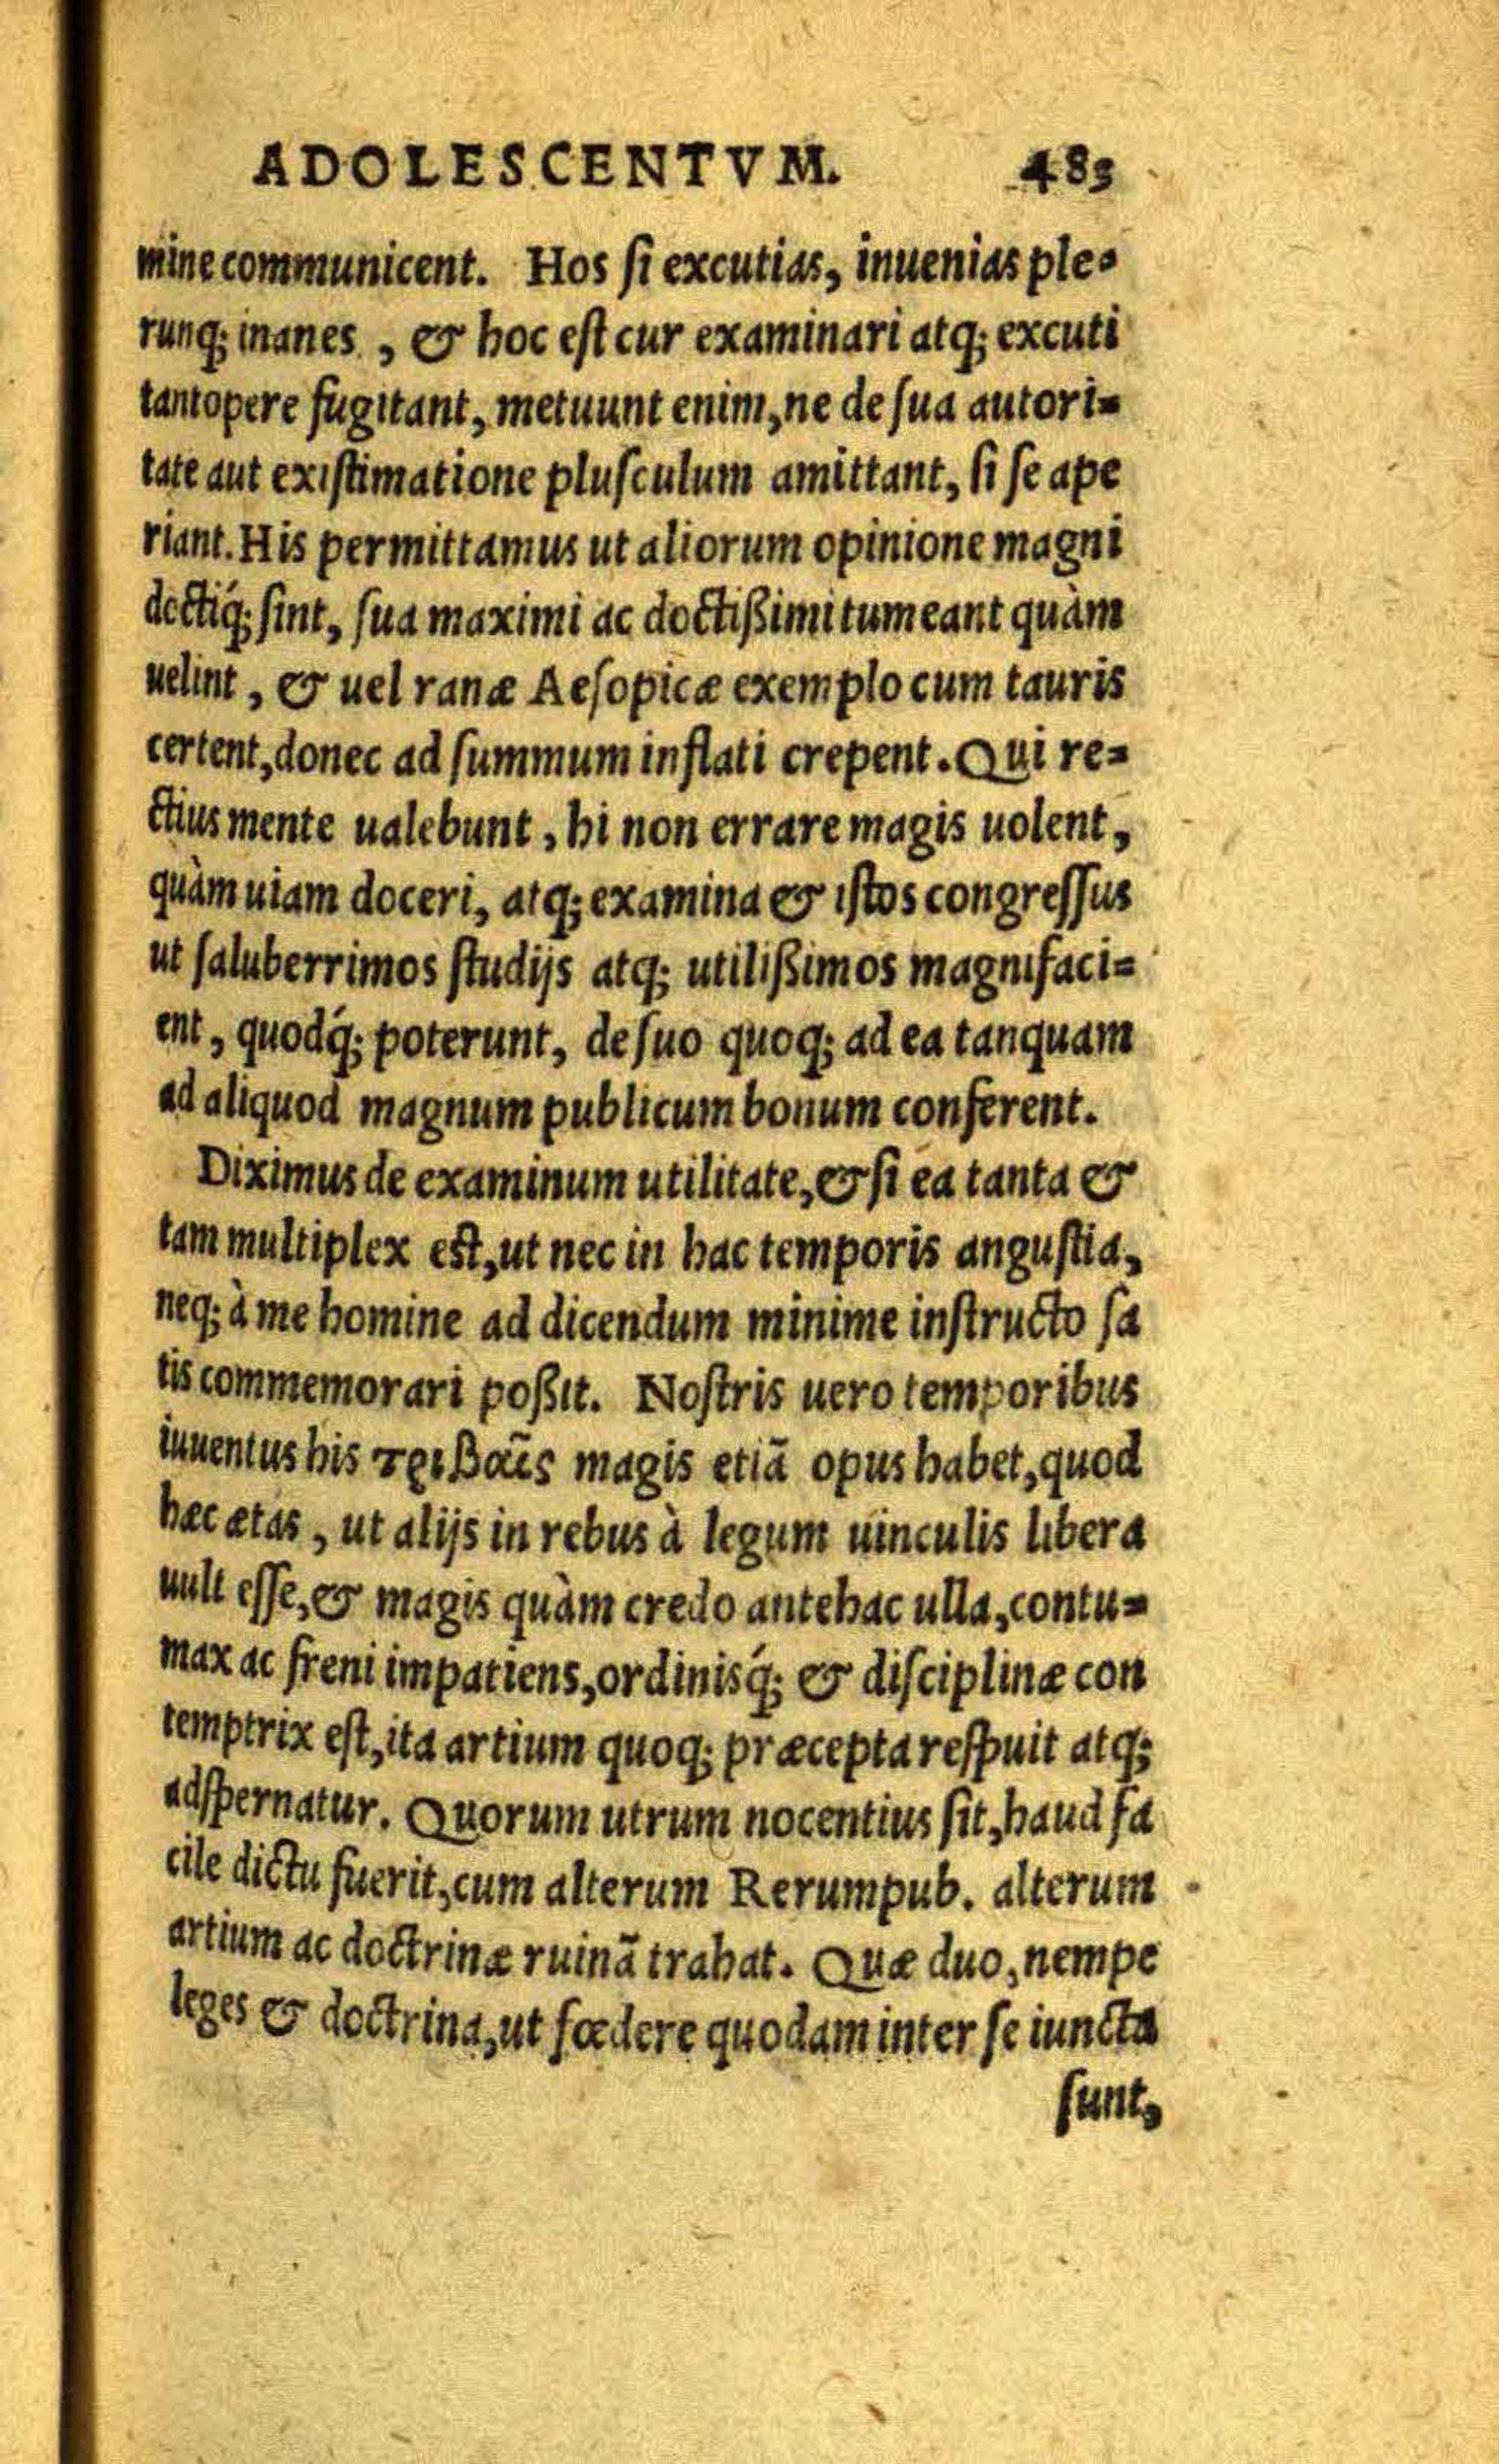 ADOLESCENTVM. 483
mine communicent. Hos ſi excutias, inuenias ple-
runq; inanes, & hoc eſt cur examinari atq; excuti
tantopere fugitant, metuunt enim, ne de ſua autori-
tate aut exiſtimatione pluſculum amittant, ſi ſe ape
riant. His permittamus ut aliorum opinione magni
doctiq́; ſint, ſua maximi ac doctißimi tumeant quàm
uelint, & uel ranæ Aeſopicæ exemplo cum tauris
certent, donec ad ſummum inflati crepent. Qui re-
ctius mente ualebunt, hi non errare magis uolent,
quàm uiam doceri, atq; examina & iſtos congreſſus
ut ſaluberrimos ſtudijs atq; utilißimos magnifaci-
ent, quodq́; poterunt, de ſuo quoq; ad ea tanquam
ad aliquod magnum publicum bonum conferent.
Diximus de examinum utilitate, & ſi ea tanta &
tam multiplex eſt, ut nec in hac temporis anguſtia,
neq; à me homine ad dicendum minime inſtructo ſa
tis commemorari poßit. Noſtris uero temporibus
iuuentus his τριβαῖς magis etiã opus habet, quod
hæc ætas, ut alijs in rebus à legum uinculis libera
uult eſſe, & magis quàm credo antehac ulla, contu-
max ac freni impatiens, ordinisq́; & diſciplinæ con
temptrix eſt, ita artium quoq; præcepta reſpuit atq;
adſpernatur. Quorum utrum nocentius ſit, haud fa
cile dictu fuerit, cum alterum Rerumpub. alterum
artium ac doctrinæ ruinã trahat. Quæ duo, nempe
leges & doctrina, ut fœdere quodam inter ſe iuncta
ſunt,